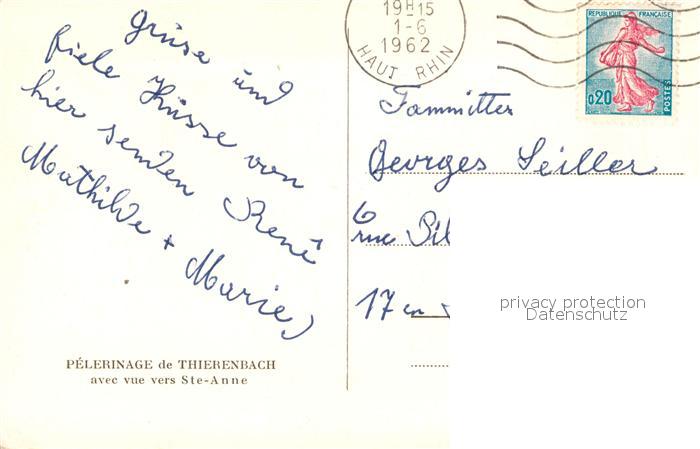 Grüse und
fiele Küsse von
hier senden René
Mathilde + Marie
PÉLERINAGE de THIERENBACH
avec vue vers Ste-Anne
19H15
1-6
1962
HAUT RHIN
REPUBLIQUE FRANÇAISE
0,20
POSTES
Georges Seiller
6
rue
17
privacy protection
Datenschutz